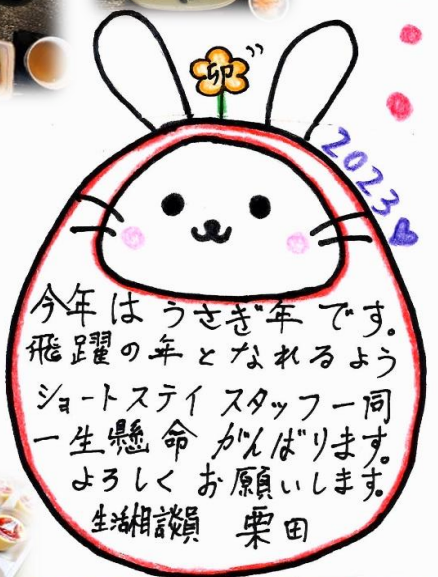 卯
2023
今年はうさぎ年です。
飛躍の年となれるよう
ショートステイ スタッフ一同
一生懸命 がんばります。
よろしくお願いします。
生活相談員 栗田